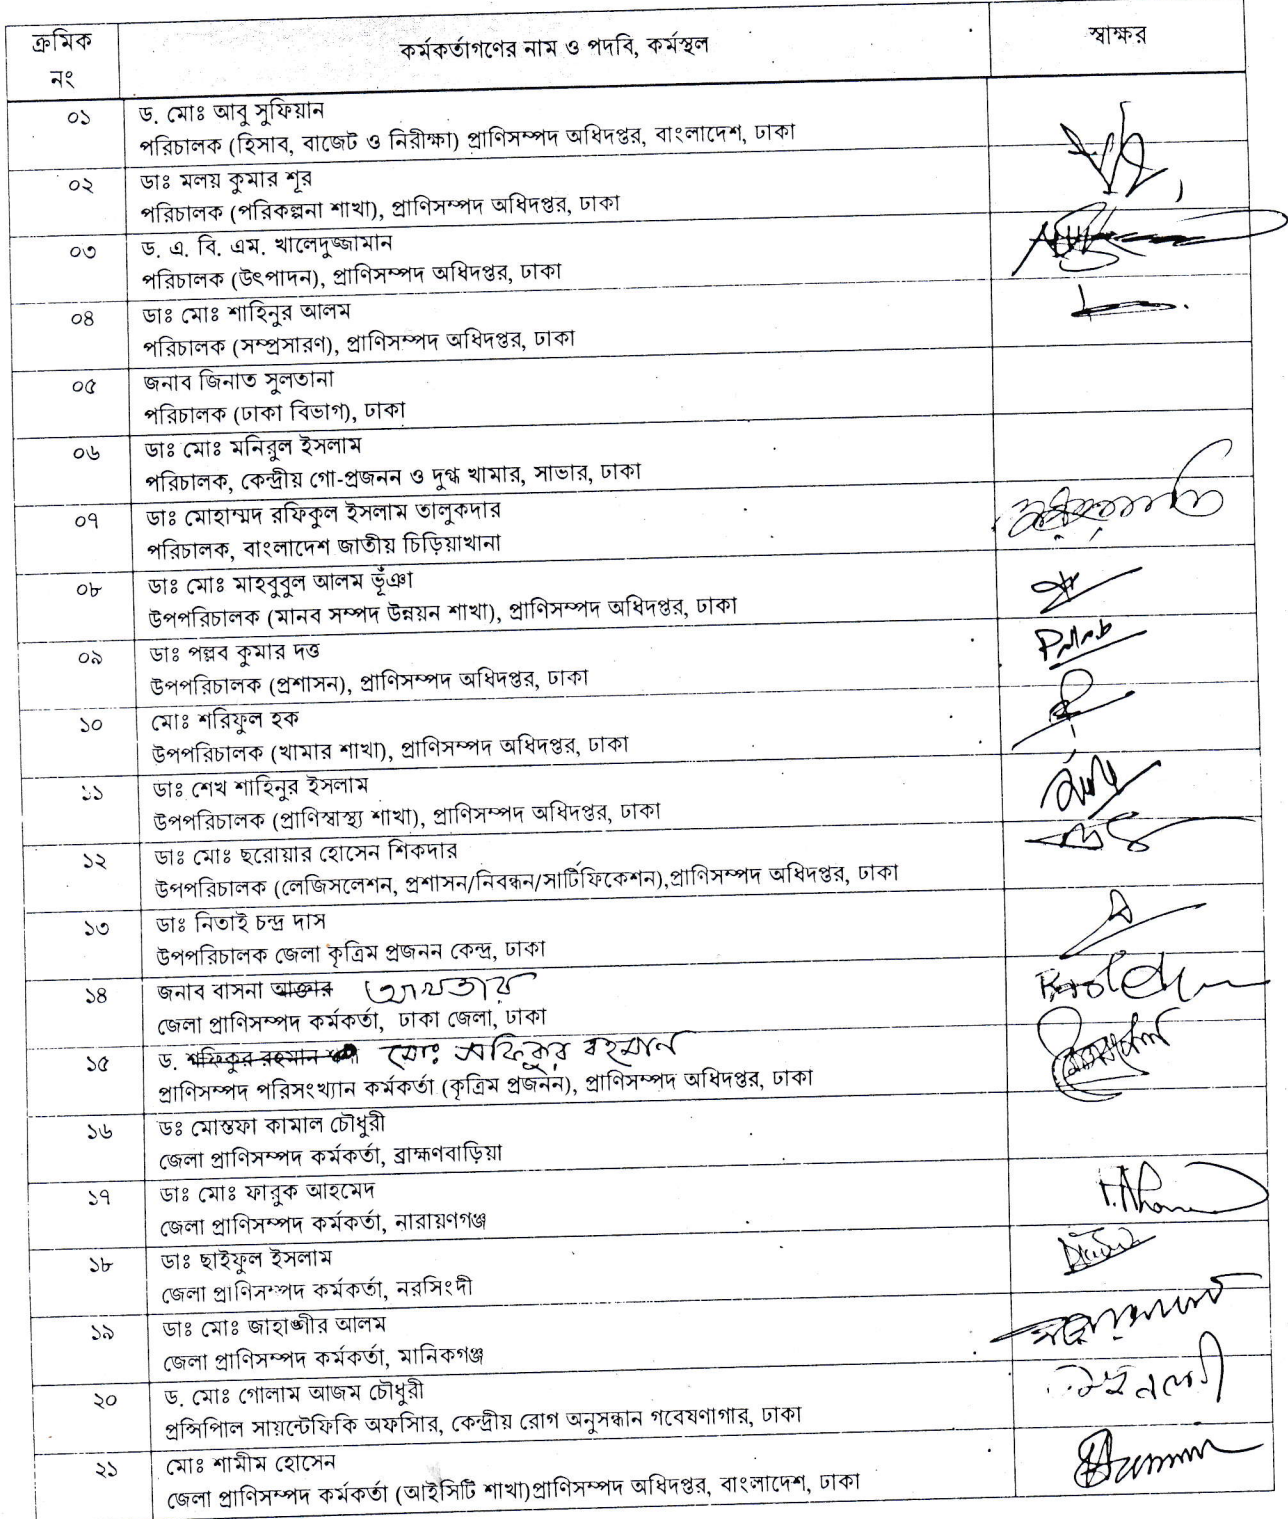 ক্রমিক নং
কর্মকর্তাগণের নাম ও পদবি, কর্মস্থল
স্বাক্ষর
০১
ড. মোঃ আবু সুফিয়ান
পরিচালক (হিসাব, বাজেট ও নিরীক্ষা) প্রাণিসম্পদ অধিদপ্তর, বাংলাদেশ, ঢাকা
০২
ডাঃ মলয় কুমার শূর
পরিচালক (পরিকল্পনা শাখা), প্রাণিসম্পদ অধিদপ্তর, ঢাকা
০৩
ড. এ. বি. এম. খালেদুজ্জামান
পরিচালক (উৎপাদন), প্রাণিসম্পদ অধিদপ্তর, ঢাকা
০৪
ডাঃ মোঃ শাহিনুর আলম
পরিচালক (সম্প্রসারণ), প্রাণিসম্পদ অধিদপ্তর, ঢাকা
০৫
জনাব জিনাত সুলতানা
পরিচালক (ঢাকা বিভাগ), ঢাকা
০৬
ডাঃ মোঃ মনিরুল ইসলাম
পরিচালক, কেন্দ্রীয় গো-প্রজনন ও দুগ্ধ খামার, সাভার, ঢাকা
০৭
ডাঃ মোহাম্মদ রফিকুল ইসলাম তালুকদার
পরিচালক, বাংলাদেশ জাতীয় চিড়িয়াখানা
০৮
ডাঃ মোঃ মাহবুবুল আলম ভূঁঞা
উপপরিচালক (মানব সম্পদ উন্নয়ন শাখা), প্রাণিসম্পদ অধিদপ্তর, ঢাকা
০৯
ডাঃ পল্লব কুমার দত্ত
উপপরিচালক (প্রশাসন), প্রাণিসম্পদ অধিদপ্তর, ঢাকা
Pallab
১০
মোঃ শরিফুল হক
উপপরিচালক (খামার শাখা), প্রাণিসম্পদ অধিদপ্তর, ঢাকা
১১
ডাঃ শেখ শাহিনুর ইসলাম
উপপরিচালক (প্রাণিস্বাস্থ্য শাখা), প্রাণিসম্পদ অধিদপ্তর, ঢাকা
১২
ডাঃ মোঃ ছরোয়ার হোসেন শিকদার
উপপরিচালক (লেজিসলেশন, প্রশাসন/নিবন্ধন/সার্টিফিকেশন),প্রাণিসম্পদ অধিদপ্তর, ঢাকা
১৩
ডাঃ নিতাই চন্দ্র দাস
উপপরিচালক জেলা কৃত্রিম প্রজনন কেন্দ্র, ঢাকা
১৪
জনাব বাসনা আক্তার আখতার
জেলা প্রাণিসম্পদ কর্মকর্তা, ঢাকা জেলা, ঢাকা
১৫
ড. শফিকুর রহমান মোঃ সফিকুর রহমান
প্রাণিসম্পদ পরিসংখ্যান কর্মকর্তা (কৃত্রিম প্রজনন), প্রাণিসম্পদ অধিদপ্তর, ঢাকা
১৬
ডঃ মোস্তফা কামাল চৌধুরী
জেলা প্রাণিসম্পদ কর্মকর্তা, ব্রাহ্মণবাড়িয়া
১৭
ডাঃ মোঃ ফারুক আহমেদ
জেলা প্রাণিসম্পদ কর্মকর্তা, নারায়ণগঞ্জ
১৮
ডাঃ ছাইফুল ইসলাম
জেলা প্রাণিসম্পদ কর্মকর্তা, নরসিংদী
১৯
ডাঃ মোঃ জাহাঙ্গীর আলম
জেলা প্রাণিসম্পদ কর্মকর্তা, মানিকগঞ্জ
২০
ড. মোঃ গোলাম আজম চৌধুরী
প্রন্সিপাল সায়ন্টেফিকি অফসিার, কেন্দ্রীয় রোগ অনুসন্ধান গবেষণাগার, ঢাকা
২১
মোঃ শামীম হোসেন
জেলা প্রাণিসম্পদ কর্মকর্তা (আইসিটি শাখা)প্রাণিসম্পদ অধিদপ্তর, বাংলাদেশ, ঢাকা